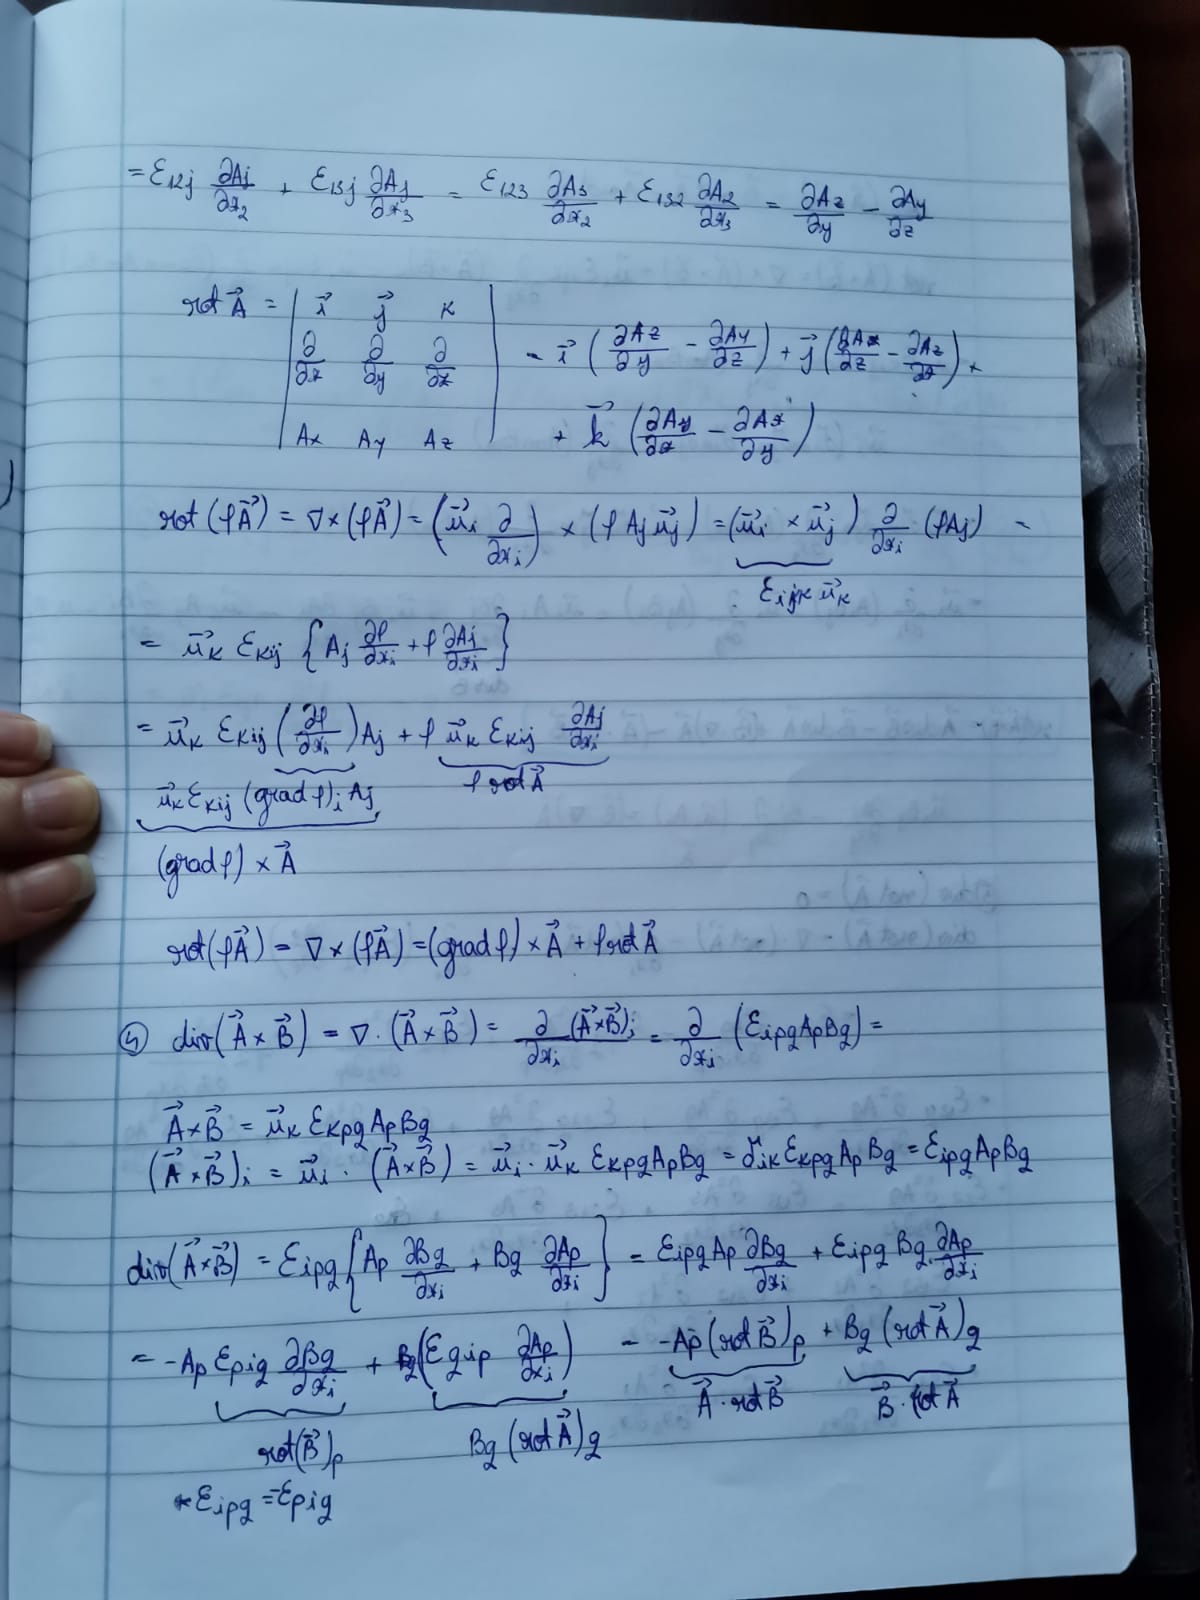 = ε₁₂ⱼ ∂Aj/∂x₂ + ε₁₃ⱼ ∂Aj/∂x₃ = ε₁₂₃ ∂A₃/∂x₂ + ε₁₃₂ ∂A₂/∂x₃ = ∂Az/∂y − ∂Ay/∂z
rot A⃗ = | i⃗ j⃗ k
∂/∂x ∂/∂y ∂/∂z
Ax Ay Az | = i⃗ (∂Az/∂y − ∂Ay/∂z) + j⃗ (∂Ax/∂z − ∂Az/∂x) +
+ k⃗ (∂Ay/∂x − ∂Ax/∂y)
rot(fA⃗) = ∇×(fA⃗) = (u⃗i ∂/∂xi) × (f Aj u⃗j) = (u⃗i × u⃗j) ∂/∂xi (fAj) =
εijk u⃗k
= u⃗k εkij {Aj ∂f/∂xi + f ∂Aj/∂xi}
= u⃗k εkij (∂f/∂xi) Aj + f u⃗k εkij ∂Aj/∂xi
u⃗k εkij (grad f)i Aj f rot A⃗
(grad f) × A⃗
rot(fA⃗) = ∇×(fA⃗) = (grad f) × A⃗ + f rot A⃗
div(A⃗×B⃗) = ∇·(A⃗×B⃗) = ∂/∂xi (A⃗×B⃗)i = ∂/∂xi (εipq Ap Bq) =
A⃗×B⃗ = u⃗k εkpq Ap Bq
(A⃗×B⃗)i = u⃗i · (A⃗×B⃗) = u⃗i · u⃗k εkpq Ap Bq = δik εkpq Ap Bq = εipq Ap Bq
div(A⃗×B⃗) = εipq {Ap ∂Bq/∂xi + Bq ∂Ap/∂xi} = εipq Ap ∂Bq/∂xi + εipq Bq ∂Ap/∂xi
= −Ap εpiq ∂Bq/∂xi + Bq (εqip ∂Ap/∂xi) = −Ap (rot B⃗)p + Bq (rot A⃗)q
A⃗ · rot B⃗ B⃗ · rot A⃗
rot(B⃗)p Bq (rot A⃗)q
* εipq = −εpiq